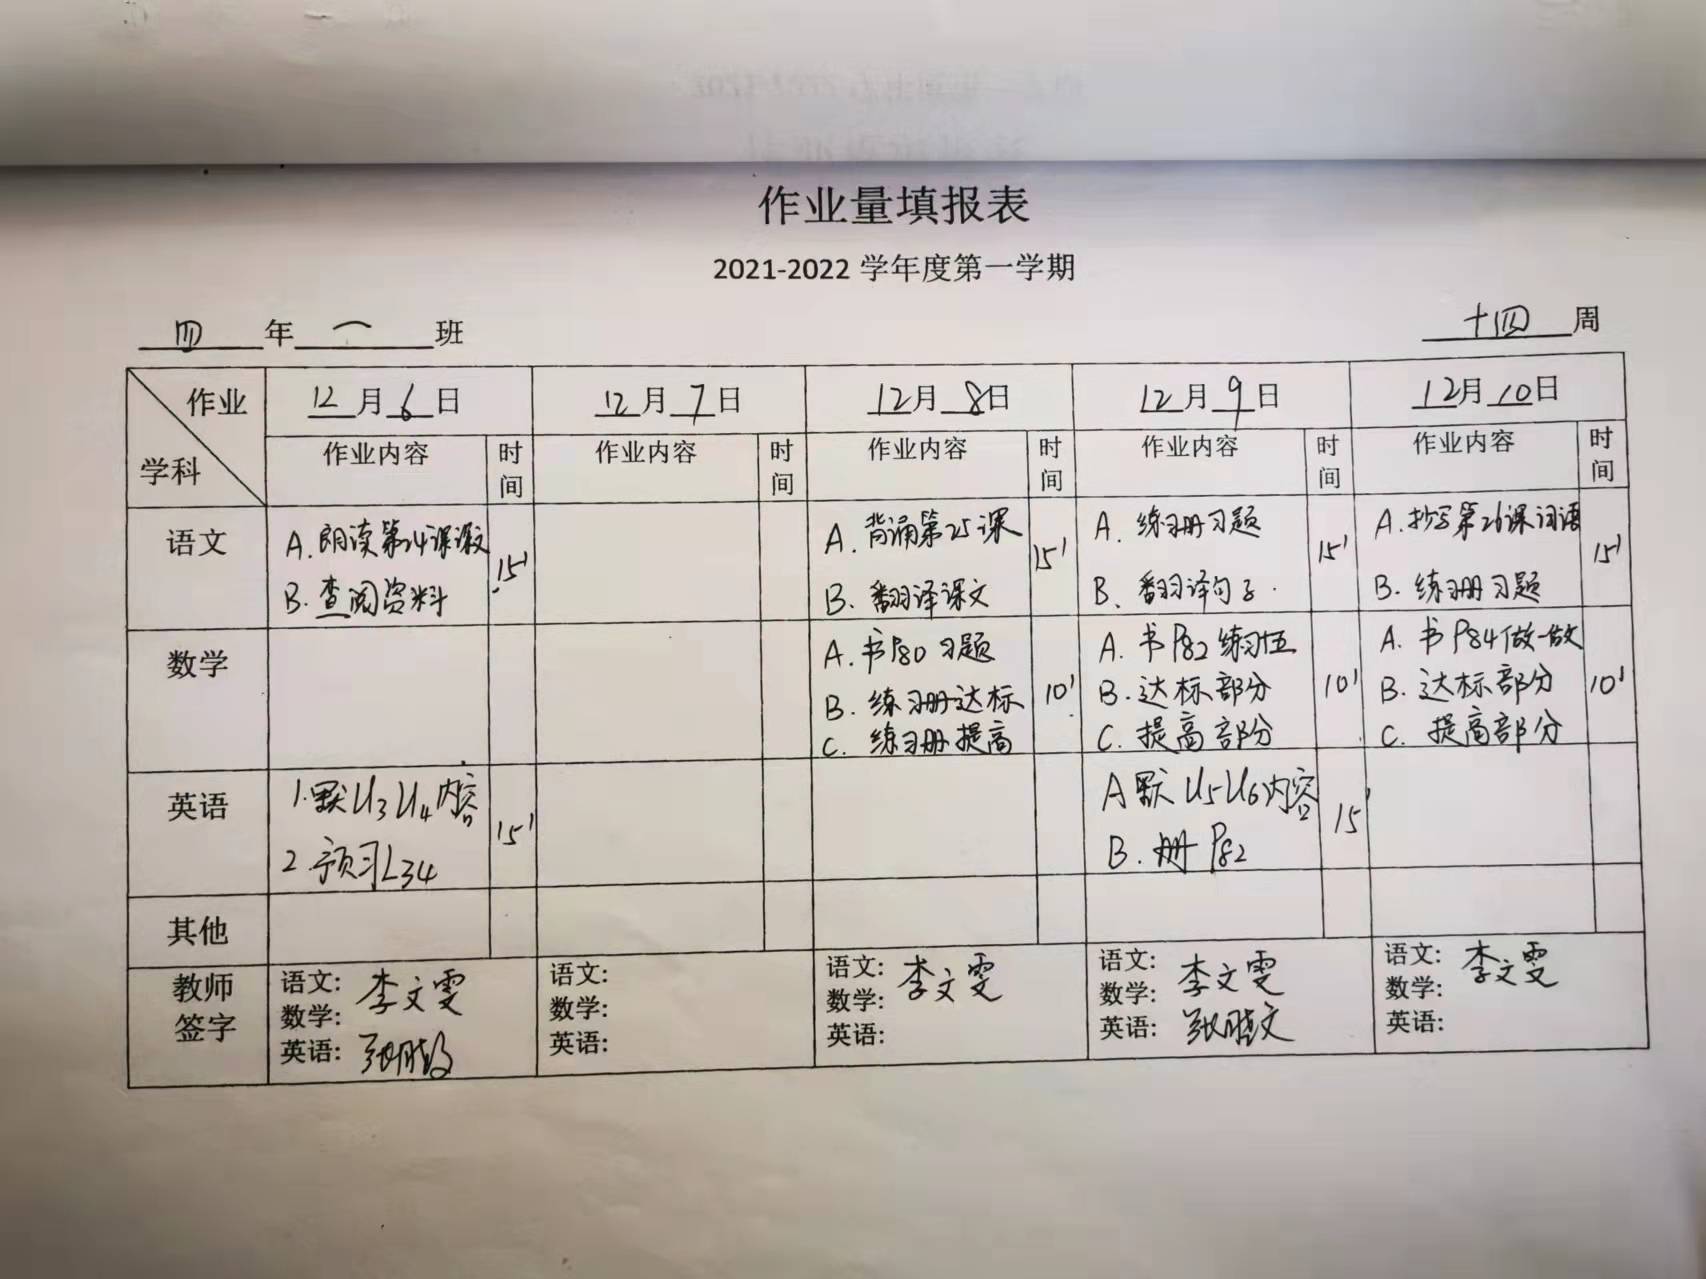 作业量填报表
2021-2022 学年度第一学期
四 年 一 班 十四 周
作业 12 月 6 日 12 月 7 日 12 月 8 日 12 月 9 日 12 月 10 日
学科 作业内容 时间 作业内容 时间 作业内容 时间 作业内容 时间 作业内容 时间
语文 A. 朗读第24课课文 15' A. 背诵第25课 15' A. 练习册习题 15' A. 抄写第26课词语 15'
B. 查阅资料 B. 翻译课文 B. 翻译句子. B. 练习册习题
数学 A. 书P80 习题 10' A. 书P82 练习五 10' A. 书P84做一做 10'
B. 练习册达标 B. 达标部分 B. 达标部分
C. 练习册提高 C. 提高部分 C. 提高部分
英语 1. 默U3U4内容 15' A 默U5U6内容 15'
2. 预习L34 B. 册P82
其他
教师签字 语文: 李文雯 语文: 语文: 李文雯 语文: 李文雯 语文: 李文雯
数学: 数学: 数学: 数学: 数学:
英语: 英语: 英语: 英语: 英语: